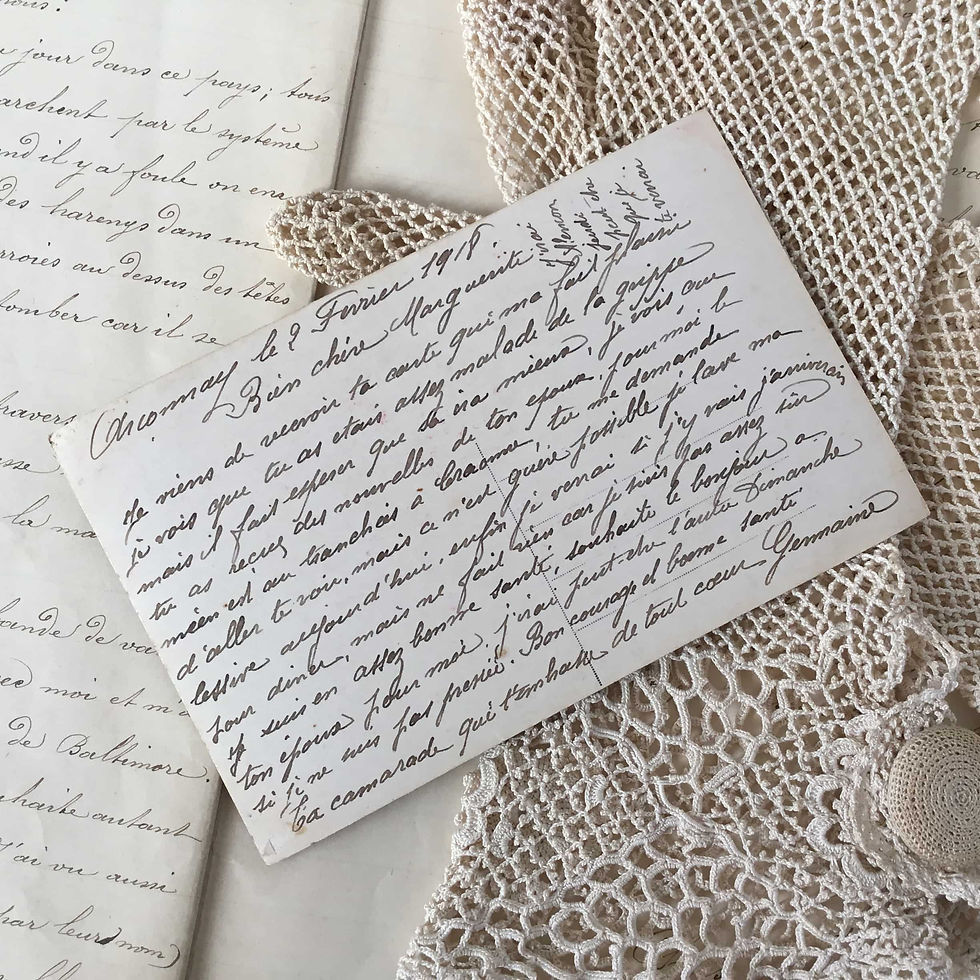 jour dans ce pays; tous
archent par le système
nd il y a foule on en
des harengs dans un
rroies au dessus des têtes
tomber car il se
travers
esse
la ma
ande de va
ec moi et m'a
de Baltimore,
uhaite autant
j'ai vu aussi
par leurs nom)
Arconnay le 2 Février 1918.
Bien chère Marguerite
Je viens de recevoir ta carte qui ma fait plaisir
je vois que tu as etais assez malade de la grippe
mais il fait esperer que sa ira mieux, je vois que
tu as reçus des nouvelles de ton epoux, pour moi le
mien est au tranchés à Craonne, tu me demande
d'aller te voir, mais ce n'est guère possible je lave ma
lessive aujourd'hui, enfin je venai si j'y vais j'arriverai
pour diner, mais ne fait rien car je suis pas assez sûr
je suis en assez bonne santé, souhaite le bonjour a
ton époux pour moi, j'irai peut-être l'autre Dimanche
si je ne suis pas pressée. Bon courage et bonne santé
Ta camarade qui t'embrasse de tout cœur Germaine
j'irai
Alencon
jeudi